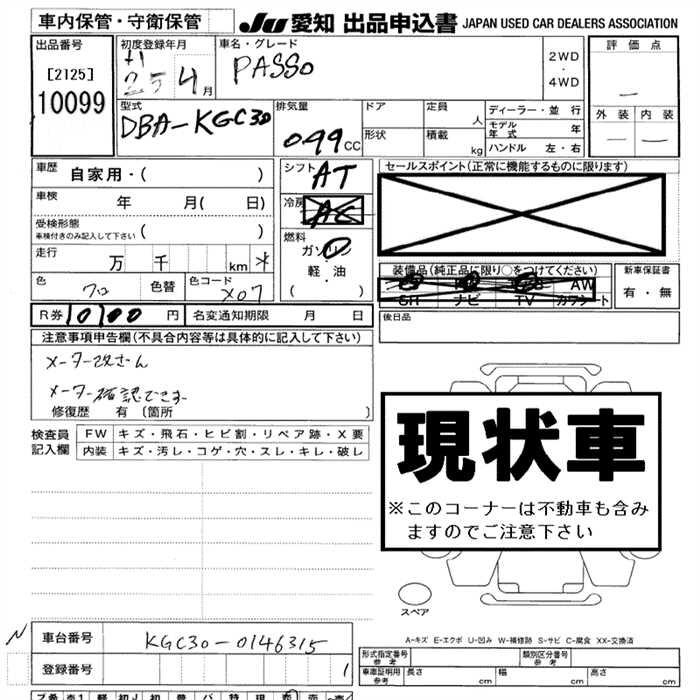 車内保管・守衛保管 JU 愛知 出品申込書 JAPAN USED CAR DEALERS ASSOCIATION
出品番号 初度登録年月 車名・グレード 評価点
[2125] H 25 4月 PASSO 2WD・4WD —
10099
外装 内装
— —
型式 排気量 ドア 定員 人 ディーラー・並行
DBA-KGC30 099 CC 形状 積載 kg モデル年式 年
ハンドル 左・右
車歴 自家用・( ) シフト AT セールスポイント(正常に機能するものに限ります)
車検 年 月( 日) 冷房 AC
受検形態 車検付きのみ記入して下さい ( )
燃料 ガソリン
走行 万 千 km * 軽・油
( ・ )
装備品(純正品に限り○をつけてください) 新車保証書
AW
SR ナビ TV カワシート 有・無
色 クロ 色替 色コード X07
R券 10100 円 名変通知期限 月 日 後日品
注意事項申告欄(不具合内容等は具体的に記入して下さい)
メーター改ざん
メーター確認できず
修復歴 有〔箇所 〕
検査員記入欄 FW キズ・飛石・ヒビ割・リペア跡・X要
内装 キズ・汚レ・コゲ・穴・スレ・キレ・破レ
現状車
※このコーナーは不動車も含み
ますのでご注意下さい
スペア
A-キズ E-エクボ U-凹み W-補修跡 S-サビ C-腐食 XX-交換済
N 車台番号 KGC30-0146315
登録番号 1
形式指定番号 参考 類別区分番号 参考
車庫証明用 参考 長さ cm 幅 cm 高さ cm